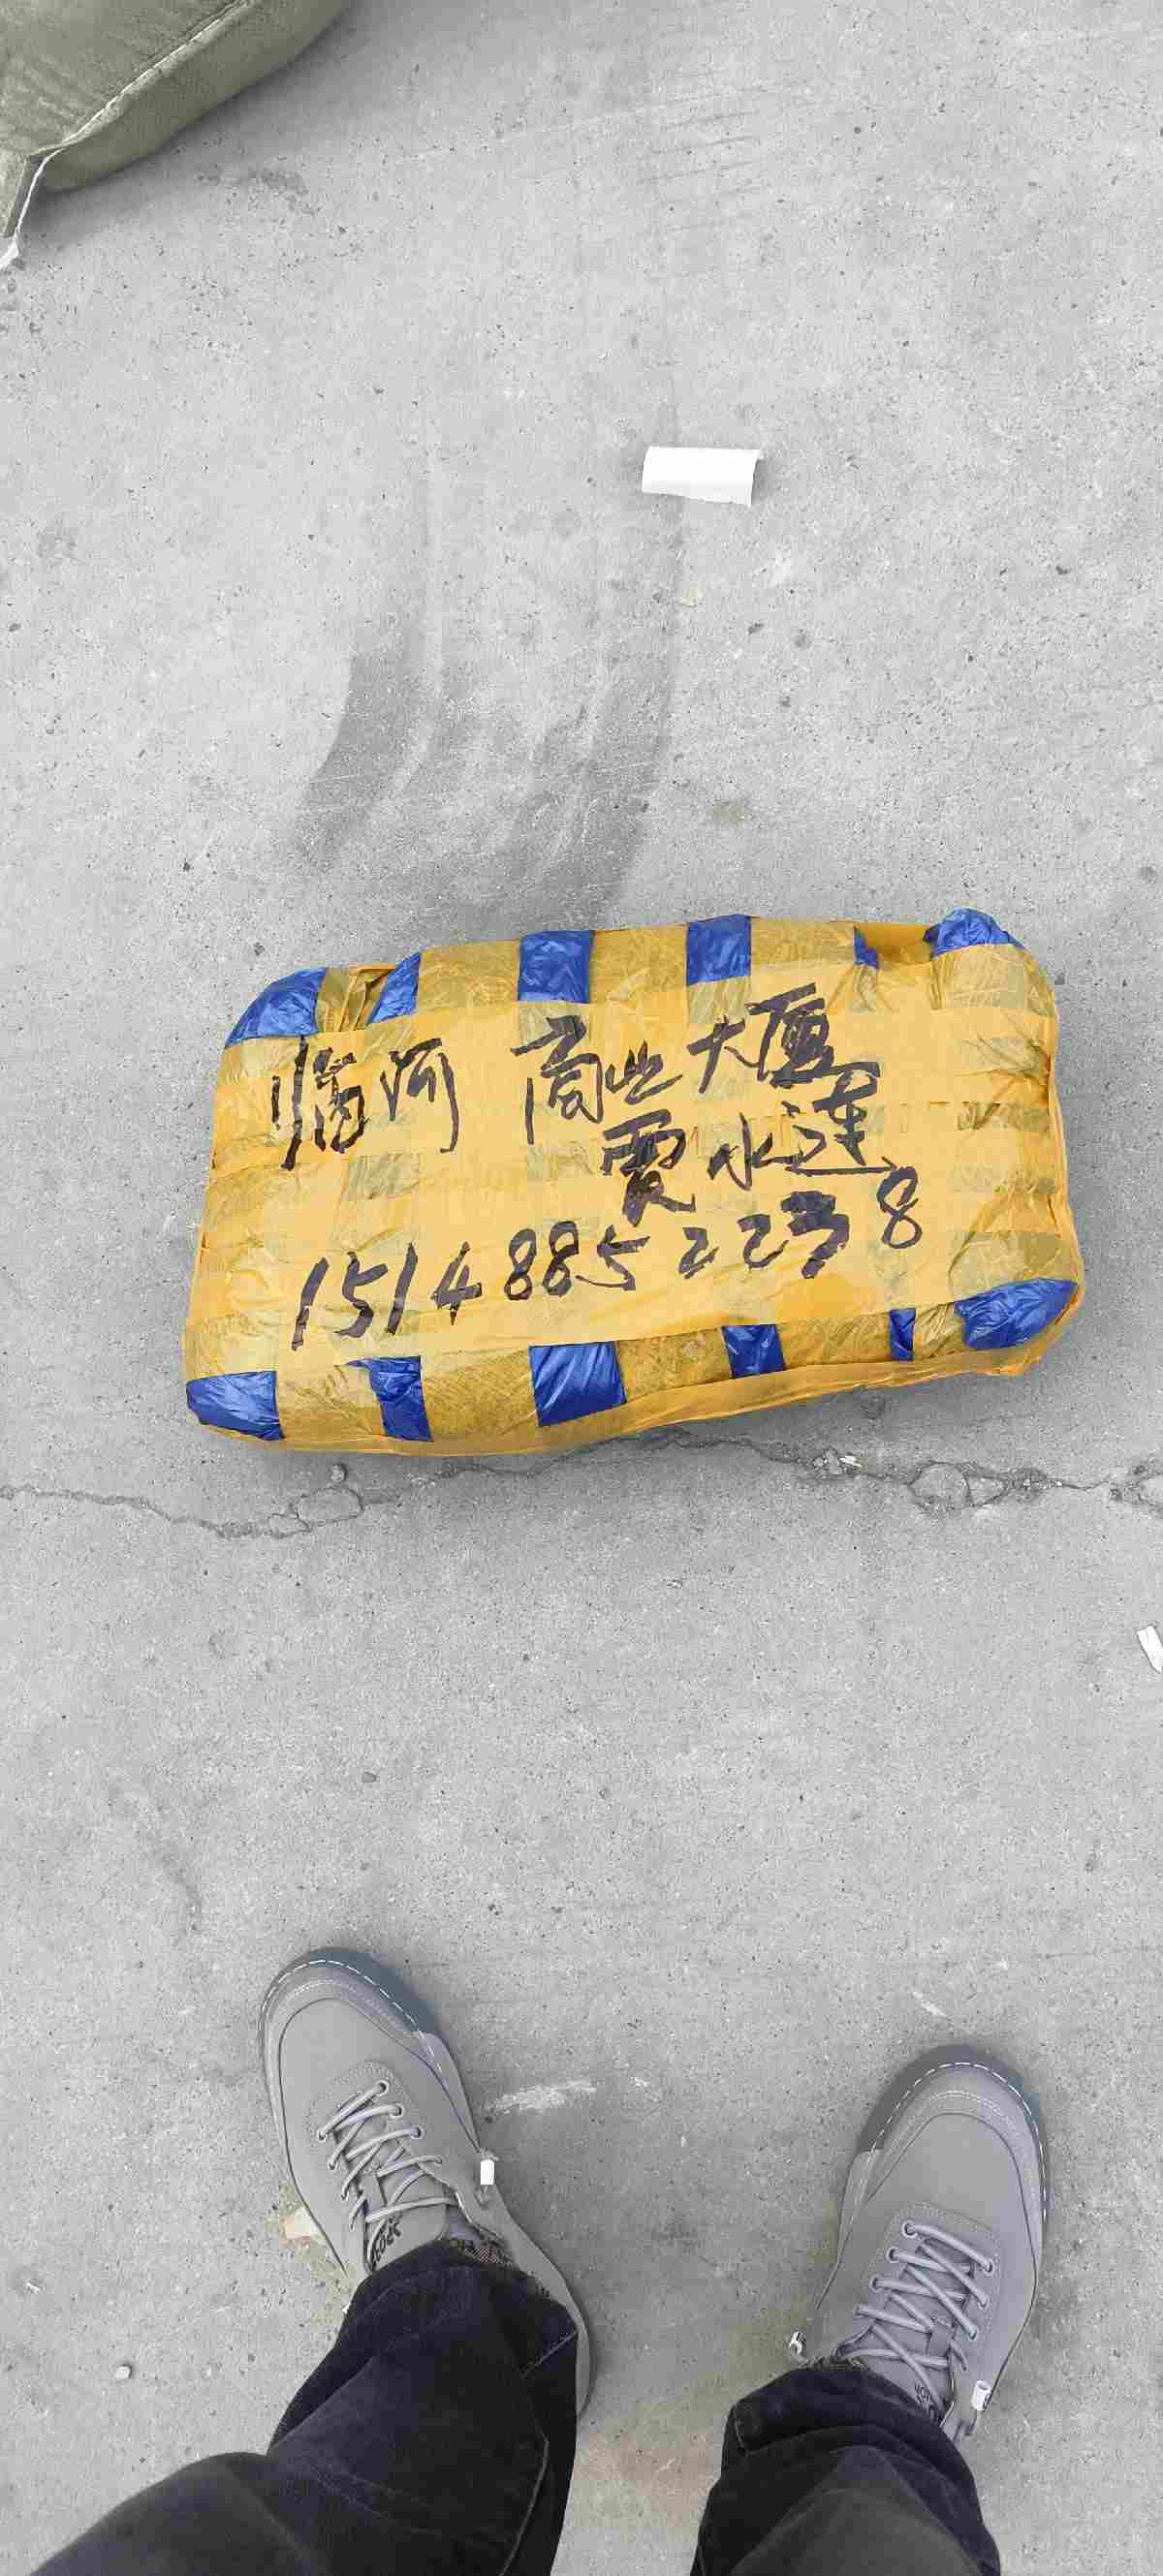 临河 商业大厦
贾水莲
15148852238